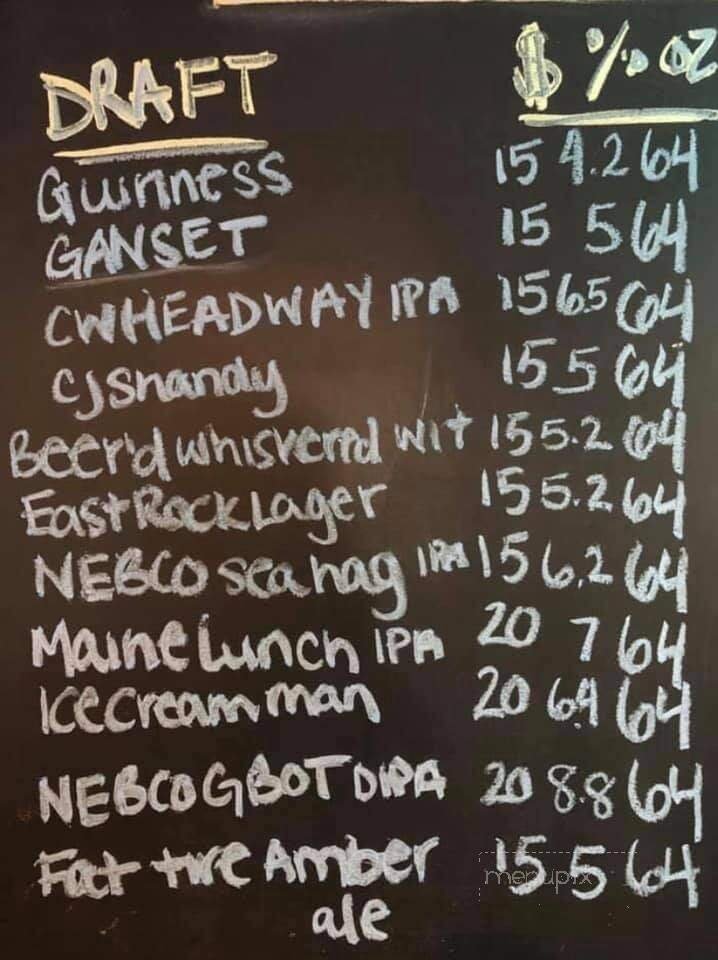 DRAFT $ % OZ
Guinness 15 4.2 64
GANSET 15 5 64
CWHEADWAY IPA 15 6.5 64
CJ Shandy 15 5 64
Beer'd whiskerrd wit 15 5.2 64
East Rock Lager 15 5.2 64
NEBCO sea hag IPA 15 6.2 64
Maine Lunch IPA 20 7 64
Ice cream man 20 6.4 64
NEBCO GBOT DIPA 20 8.8 64
Fat tire Amber 15 5 64
ale
menupix